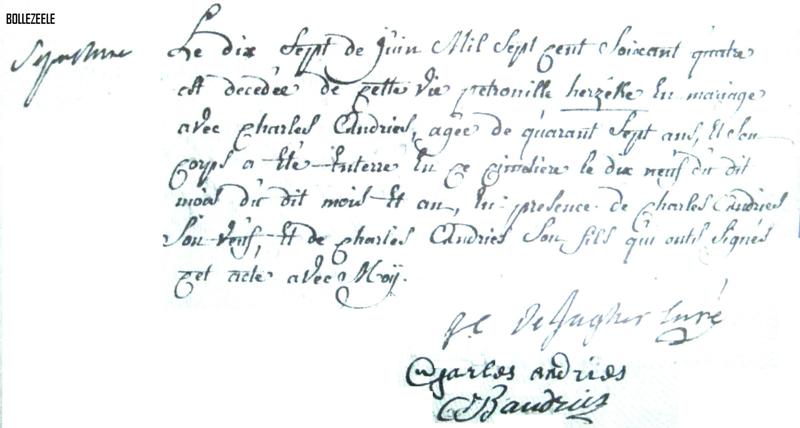 BOLLEZEELE
Sepulture
Le dix sept de juin Mil sept cent soixant quatre
est decedée de cette vie petronille herzéke En mariage
avec charles Andries, agée de quarant sept ans, Et son
corps a Eté Enterré En ce cimetiere le dix neuf du dit
mois du dit mois Et an, En presence de charles Andries
son veuf, Et de charles Andries son fils qui ont signés
cet acte avec Moÿ.
De Jagher curé
Charles andries